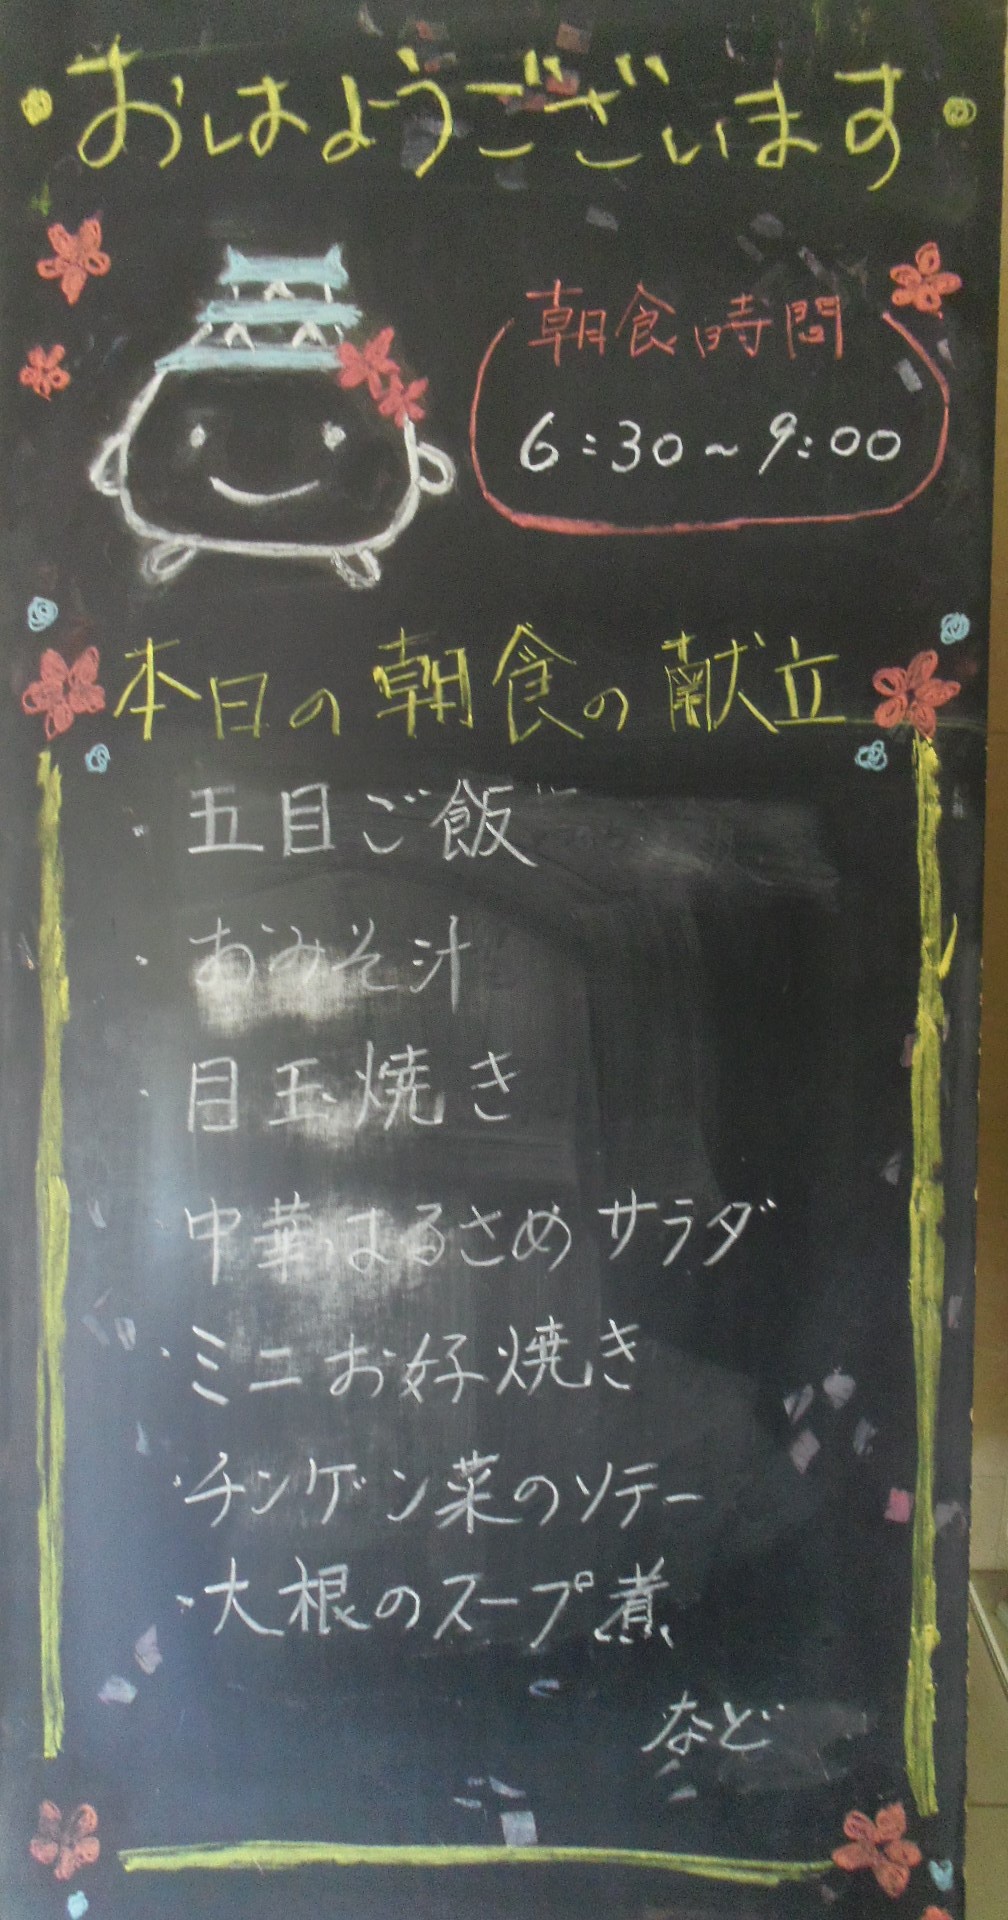 おはようございます
朝食時間
6:30~9:00
本日の朝食の献立
・五目ご飯
・おみそ汁
・目玉焼き
・中華はるさめサラダ
・ミニお好焼き
・チンゲン菜のソテー
・大根のスープ煮
など